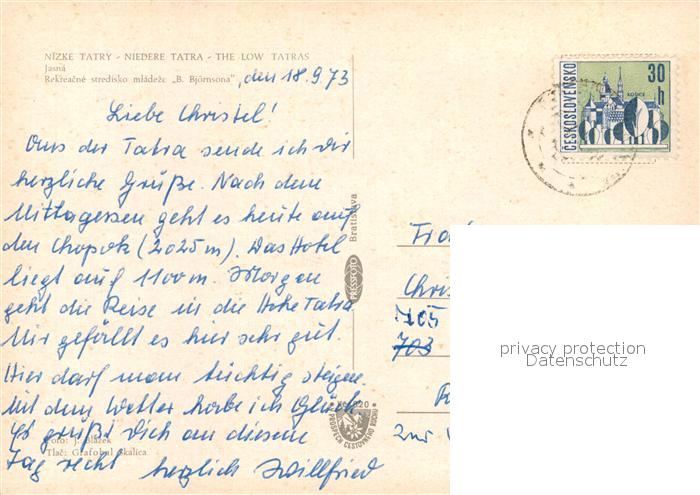 NÍZKE TATRY - NIEDERE TATRA - THE LOW TATRAS
Jasná
Rekreačné stredisko mládeže „B. Björnsona"
, den 18.9.73
Liebe Christel!
Aus der Tatra sende ich dir
herzliche Grüße. Nach dem
Mittagessen geht es heute auf
den Chopok (2025m). Das Hotel
liegt auf 1100m. Morgen
geht die Reise in die Hohe Tatra.
Mir gefällt es hier sehr gut.
Hier darf man tüchtig steigen.
Mit dem Wetter habe ich Glück.
Es grüßt Dich an diesem
Tag recht herzlich Willfried
Foto: J. Blažek
Tlač: Grafobal Skalica
PRESSFOTO Bratislava
ČESKOSLOVENSKO
30 h
KOŠICE
705
703
zur
privacy protection
Datenschutz